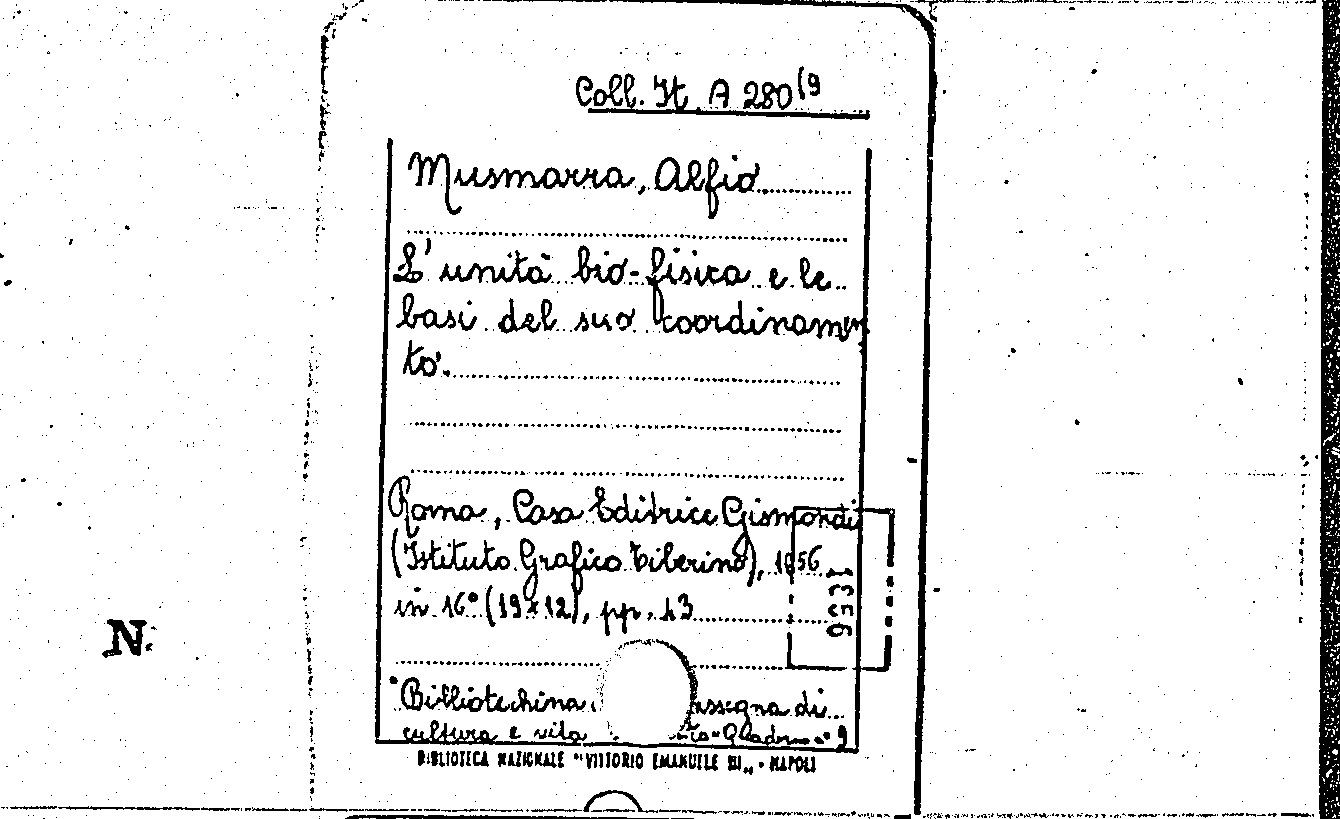 Coll. It. A 280(9
Musmarra, Alfio
L'unità bio-fisica e le
basi del suo coordinamen
to.
Roma, Casa Editrice Gismondi
(Istituto Grafico Tiberino), 1956
in 16° (19x12), pp. 43
9531
N.
"Bibliotechina assegna di
cultura e vita Quaderno n° 9
BIBLIOTECA NAZIONALE "VITTORIO EMANUELE III„ - NAPOLI